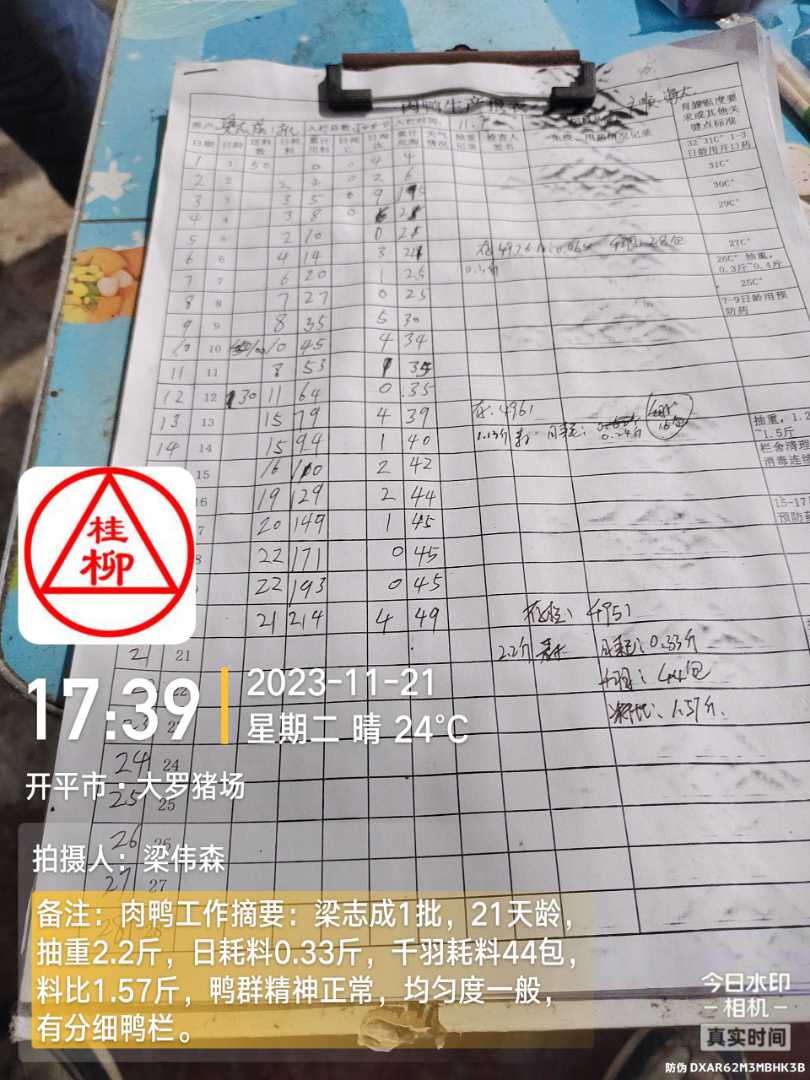 肉鸭生产报表
日期 日龄 耗料 累计用料 日死亡 日淘汰 累计死淘 天气情况 抽重记录 检查人签名 免疫、用药情况记录 育雏温度要求或其他关键点标准
1 1 50 0 0 4 4 32~31C° 1-3日龄用开口药
2 2 2 2 0 2 6 31C°
3 3 3 5 0 9 15 30C°
4 4 3 8 0 6 21 29C°
5 5 2 10 0 21
6 6 4 14 3 24 27C°
7 7 6 20 1 25 0.3斤 26C° 抽重,0.3斤~0.4斤
8 8 7 27 0 25 25C°
9 9 8 35 5 30 7-9日龄用预防药
10 10 10 45 4 34
11 11 8 53 1 35
12 12 130 11 64 0 35 存:4961
13 13 15 79 4 39 1.13斤 日耗:0.24斤 抽重,1.2~1.5斤
14 14 15 94 1 40 栏舍清理消毒连续
15 16 110 2 42
16 19 129 2 44 15-17
7 20 149 1 45 预防药
8 22 171 0 45
22 193 0 45
21 214 4 49 存栏:4951
21 21 2.2斤 日耗:0.33斤
22 千羽:44包
23 料比:1.57斤.
24 24
25 25
26 26
27 27
桂
柳
17:39
2023-11-21
星期二 晴 24℃
开平市·大罗猪场
拍摄人:梁伟森
备注:肉鸭工作摘要:梁志成1批,21天龄,
抽重2.2斤,日耗料0.33斤,千羽耗料44包,
料比1.57斤,鸭群精神正常,均匀度一般,
有分细鸭栏。
今日水印
-相机-
真实时间
防伪 DXAR62M3MBHK3B